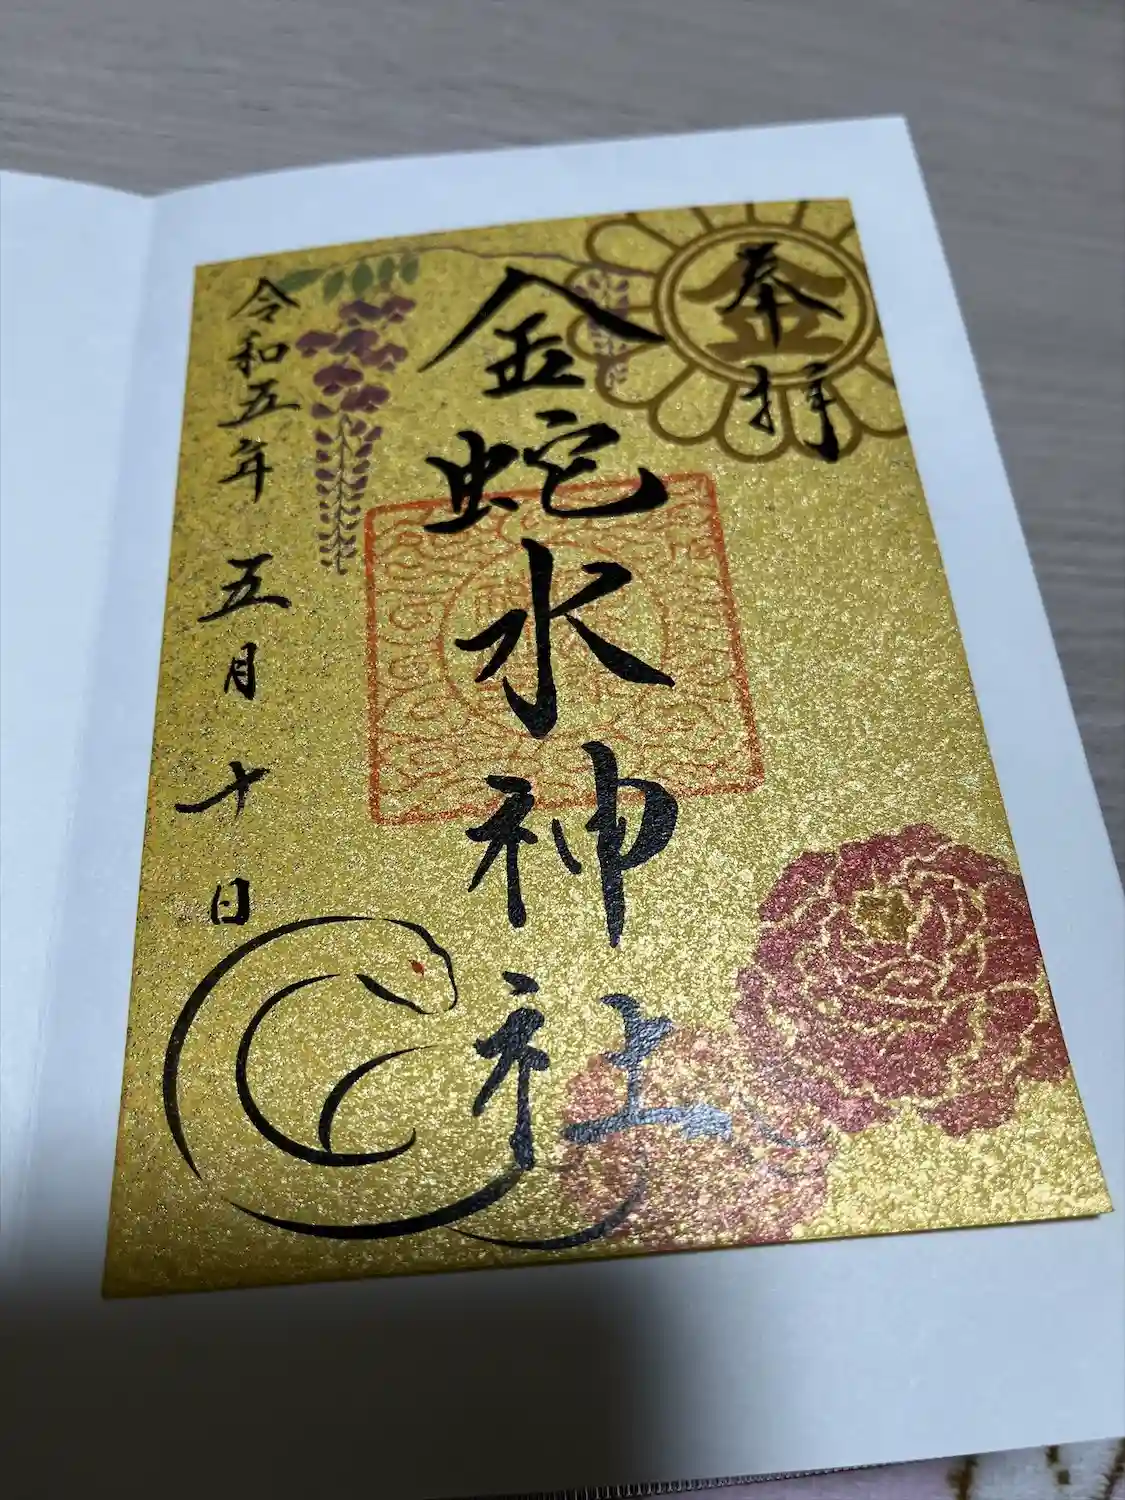 奉拝
金
金蛇水神社
令和五年 五月 十日